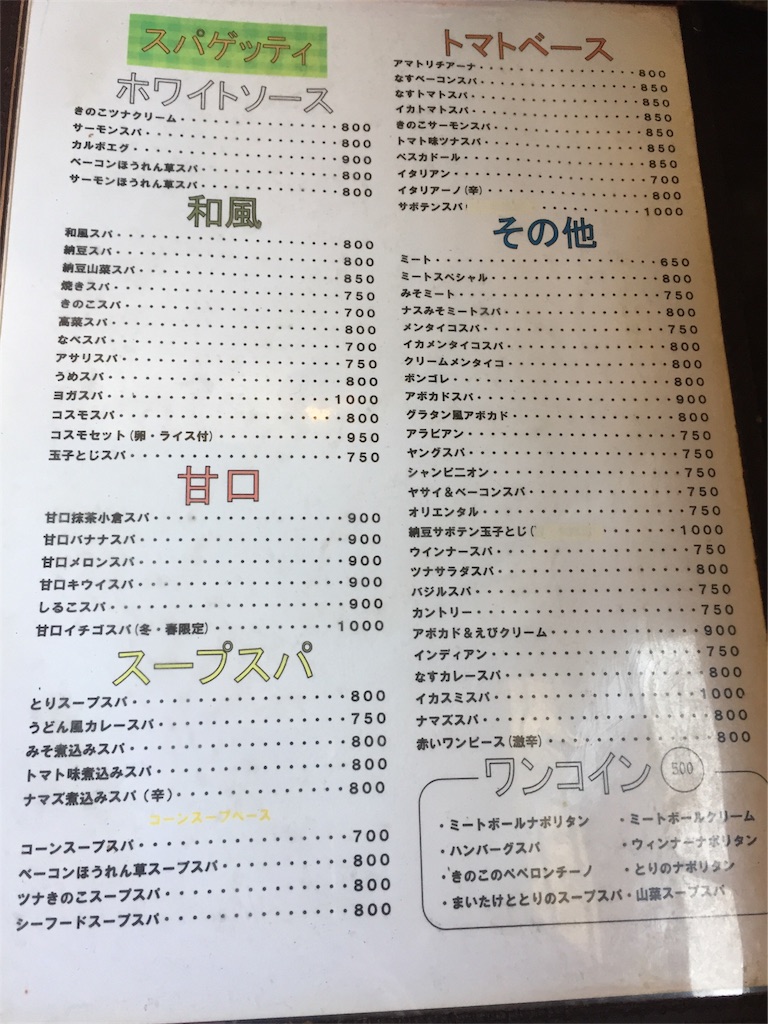 スパゲッティ
ホワイトソース
きのこツナクリーム・・・・・・・・・・・・・800
サーモンスパ・・・・・・・・・・・・・・・800
カルボエグ・・・・・・・・・・・・・・・・900
ベーコンほうれん草スパ・・・・・・・・・・・800
サーモンほうれん草スパ・・・・・・・・・・・800
和風
和風スパ・・・・・・・・・・・・・・・・・800
納豆スパ・・・・・・・・・・・・・・・・・800
納豆山菜スパ・・・・・・・・・・・・・・・850
焼きスパ・・・・・・・・・・・・・・・・・750
きのこスパ・・・・・・・・・・・・・・・・700
高菜スパ・・・・・・・・・・・・・・・・・800
なべスパ・・・・・・・・・・・・・・・・・700
アサリスパ・・・・・・・・・・・・・・・・750
うめスパ・・・・・・・・・・・・・・・・・800
ヨガスパ・・・・・・・・・・・・・・・・・1000
コスモスパ・・・・・・・・・・・・・・・・800
コスモセット(卵・ライス付)・・・・・・・・・950
玉子とじスパ・・・・・・・・・・・・・・・750
甘口
甘口抹茶小倉スパ・・・・・・・・・・・・・900
甘口バナナスパ・・・・・・・・・・・・・・900
甘口メロンスパ・・・・・・・・・・・・・・900
甘口キウイスパ・・・・・・・・・・・・・・900
しるこスパ・・・・・・・・・・・・・・・・900
甘口イチゴスパ(冬・春限定)・・・・・・・・・1000
スープスパ
とりスープスパ・・・・・・・・・・・・・・800
うどん風カレースパ・・・・・・・・・・・・750
みそ煮込みスパ・・・・・・・・・・・・・・800
トマト味煮込みスパ・・・・・・・・・・・・800
ナマズ煮込みスパ(辛)・・・・・・・・・・・800
コーンスープベース
コーンスープスパ・・・・・・・・・・・・・700
ベーコンほうれん草スープスパ・・・・・・・・800
ツナきのこスープスパ・・・・・・・・・・・800
シーフードスープスパ・・・・・・・・・・・800
トマトベース
アマトリチアーナ・・・・・・・・・・・・・800
なすベーコンスパ・・・・・・・・・・・・・850
なすトマトスパ・・・・・・・・・・・・・・850
イカトマトスパ・・・・・・・・・・・・・・850
きのこサーモンスパ・・・・・・・・・・・・850
トマト味ツナスパ・・・・・・・・・・・・・850
ペスカドール・・・・・・・・・・・・・・・850
イタリアン・・・・・・・・・・・・・・・・700
イタリアーノ(辛)・・・・・・・・・・・・・800
サボテンスパ・・・・・・・・・・1000
その他
ミート・・・・・・・・・・・・・・・・・・650
ミートスペシャル・・・・・・・・・・・・・800
みそミート・・・・・・・・・・・・・・・・750
ナスみそミートスパ・・・・・・・・・・・・800
メンタイコスパ・・・・・・・・・・・・・・750
イカメンタイコスパ・・・・・・・・・・・・800
クリームメンタイコ・・・・・・・・・・・・800
ボンゴレ・・・・・・・・・・・・・・・・・800
アボカドスパ・・・・・・・・・・・・・・・900
グラタン風アボカド・・・・・・・・・・・・800
アラビアン・・・・・・・・・・・・・・・・750
ヤングスパ・・・・・・・・・・・・・・・・750
シャンピニオン・・・・・・・・・・・・・・750
ヤサイ&ベーコンスパ・・・・・・・・・・・750
オリエンタル・・・・・・・・・・・・・・・750
納豆サボテン玉子とじ(・・・・・・1000
ウインナースパ・・・・・・・・・・・・・・750
ツナサラダスパ・・・・・・・・・・・・・・800
バジルスパ・・・・・・・・・・・・・・・・750
カントリー・・・・・・・・・・・・・・・・750
アボカド&えびクリーム・・・・・・・・・・900
インディアン・・・・・・・・・・・・・・・750
なすカレースパ・・・・・・・・・・・・・・800
イカスミスパ・・・・・・・・・・・・・・・1000
ナマズスパ・・・・・・・・・・・・・・・・800
赤いワンピース(激辛)・・・・・・・・・・・800
ワンコイン 500
・ミートボールナポリタン ・ミートボールクリーム
・ハンバーグスパ ・ウィンナーナポリタン
・きのこのペペロンチーノ ・とりのナポリタン
・まいたけととりのスープスパ・山菜スープスパ